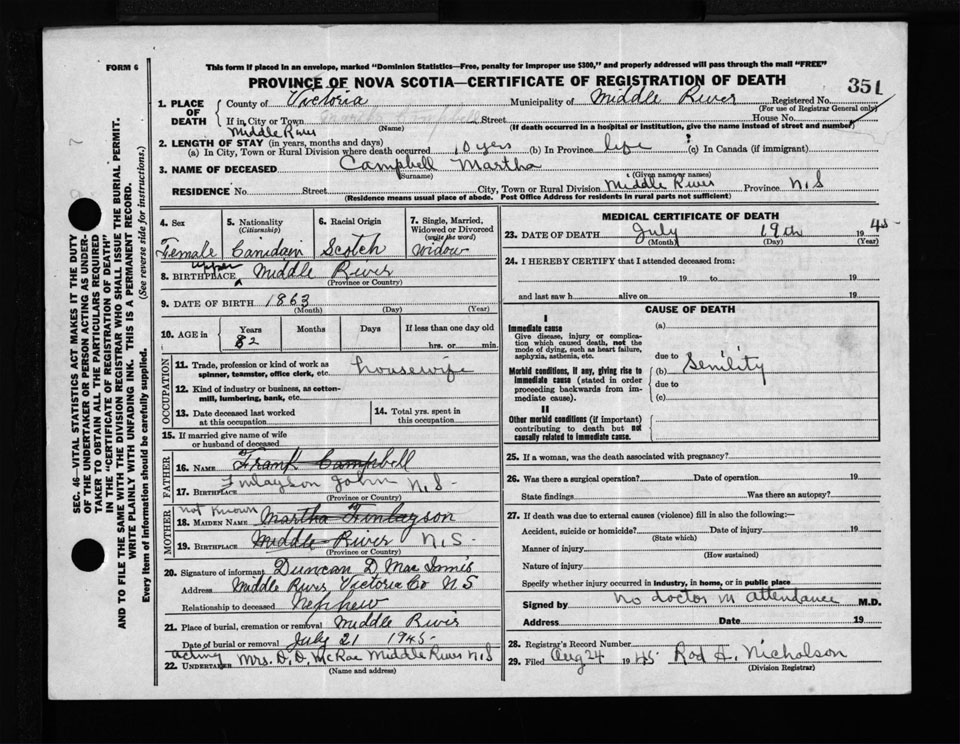 FORM 6
This form if placed in an envelope, marked "Dominion Statistics—Free, penalty for improper use $300," and properly addressed will pass through the mail "FREE"
PROVINCE OF NOVA SCOTIA—CERTIFICATE OF REGISTRATION OF DEATH
351
1. PLACE OF DEATH
County of Victoria Municipality of Middle River Registered No.
(For use of Registrar General only)
If in City or Town Street House No.
Middle River (Name) (If death occurred in a hospital or institution, give the name instead of street and number)
2. LENGTH OF STAY (in years, months and days)
(a) In City, Town or Rural Division where death occurred 10 yers (b) In Province life (c) In Canada (if immigrant)
3. NAME OF DECEASED Campbell Martha
(Surname) (Given name or names)
RESIDENCE No. Street City, Town or Rural Division Middle River Province N.S
(Residence means usual place of abode. Post Office Address for residents in rural parts not sufficient)
4. Sex
Female
5. Nationality
(Citizenship)
Canidain
6. Racial Origin
Scotch
7. Single, Married, Widowed or Divorced
(write the word)
Widow
8. BIRTHPLACE upper Middle River
(Province or Country)
9. DATE OF BIRTH 1863
(Month) (Day) (Year)
10. AGE in Years Months Days If less than one day old
82 hrs. or min.
OCCUPATION
11. Trade, profession or kind of work as spinner, teamster, office clerk, etc. housewife
12. Kind of industry or business, as cotton-mill, lumbering, bank, etc.
13. Date deceased last worked at this occupation
14. Total yrs. spent in this occupation
15. If married give name of wife or husband of deceased
FATHER
16. NAME Frank Campbell
Finlayson John N.S-
17. BIRTHPLACE
(Province or Country)
MOTHER
not known
18. MAIDEN NAME Martha Finlayson
19. BIRTHPLACE Middle River N.S-
(Province or Country)
20. Signature of informant Duncan D. Mac Innis
Address Middle River Victoria Co N.S
Relationship to deceased Nephew
21. Place of burial, cremation or removal Middle River
Date of burial or removal July 21 1945-
acting
22. UNDERTAKER Mrs. D. D. McRae Middle River N.S
(Name and address)
MEDICAL CERTIFICATE OF DEATH
23. DATE OF DEATH July 19th 1945-
(Month) (Day) (Year)
24. I HEREBY CERTIFY that I attended deceased from:
19 to 19
and last saw h alive on 19
CAUSE OF DEATH
I
Immediate cause
Give disease, injury or complication which caused death, not the mode of dying, such as heart failure, asphyxia, asthenia, etc.
(a)
due to
Morbid conditions, if any, giving rise to immediate cause (stated in order proceeding backwards from immediate cause).
(b) Senility
due to
(c)
II
Other morbid conditions (if important) contributing to death but not causally related to immediate cause.
25. If a woman, was the death associated with pregnancy?
26. Was there a surgical operation? Date of operation 19
State findings Was there an autopsy?
27. If death was due to external causes (violence) fill in also the following:—
Accident, suicide or homicide? Date of injury 19
(State which)
Manner of injury
(How sustained)
Nature of injury
Specify whether injury occurred in industry, in home, or in public place
Signed by no doctor in attendance M.D.
Address Date 19
28. Registrar's Record Number
29. Filed Aug 24 1945 Rod A. Nicholson
(Division Registrar)
SEC. 46—VITAL STATISTICS ACT MAKES IT THE DUTY
OF THE UNDERTAKER OR PERSON ACTING AS UNDER-
TAKER TO OBTAIN ALL THE PARTICULARS REQUIRED
IN THE "CERTIFICATE OF REGISTRATION OF DEATH"
AND TO FILE THE SAME WITH THE DIVISION REGISTRAR WHO SHALL ISSUE THE BURIAL PERMIT.
WRITE PLAINLY WITH UNFADING INK. THIS IS A PERMANENT RECORD.
Every item of Information should be carefully supplied. (See reverse side for instructions.)